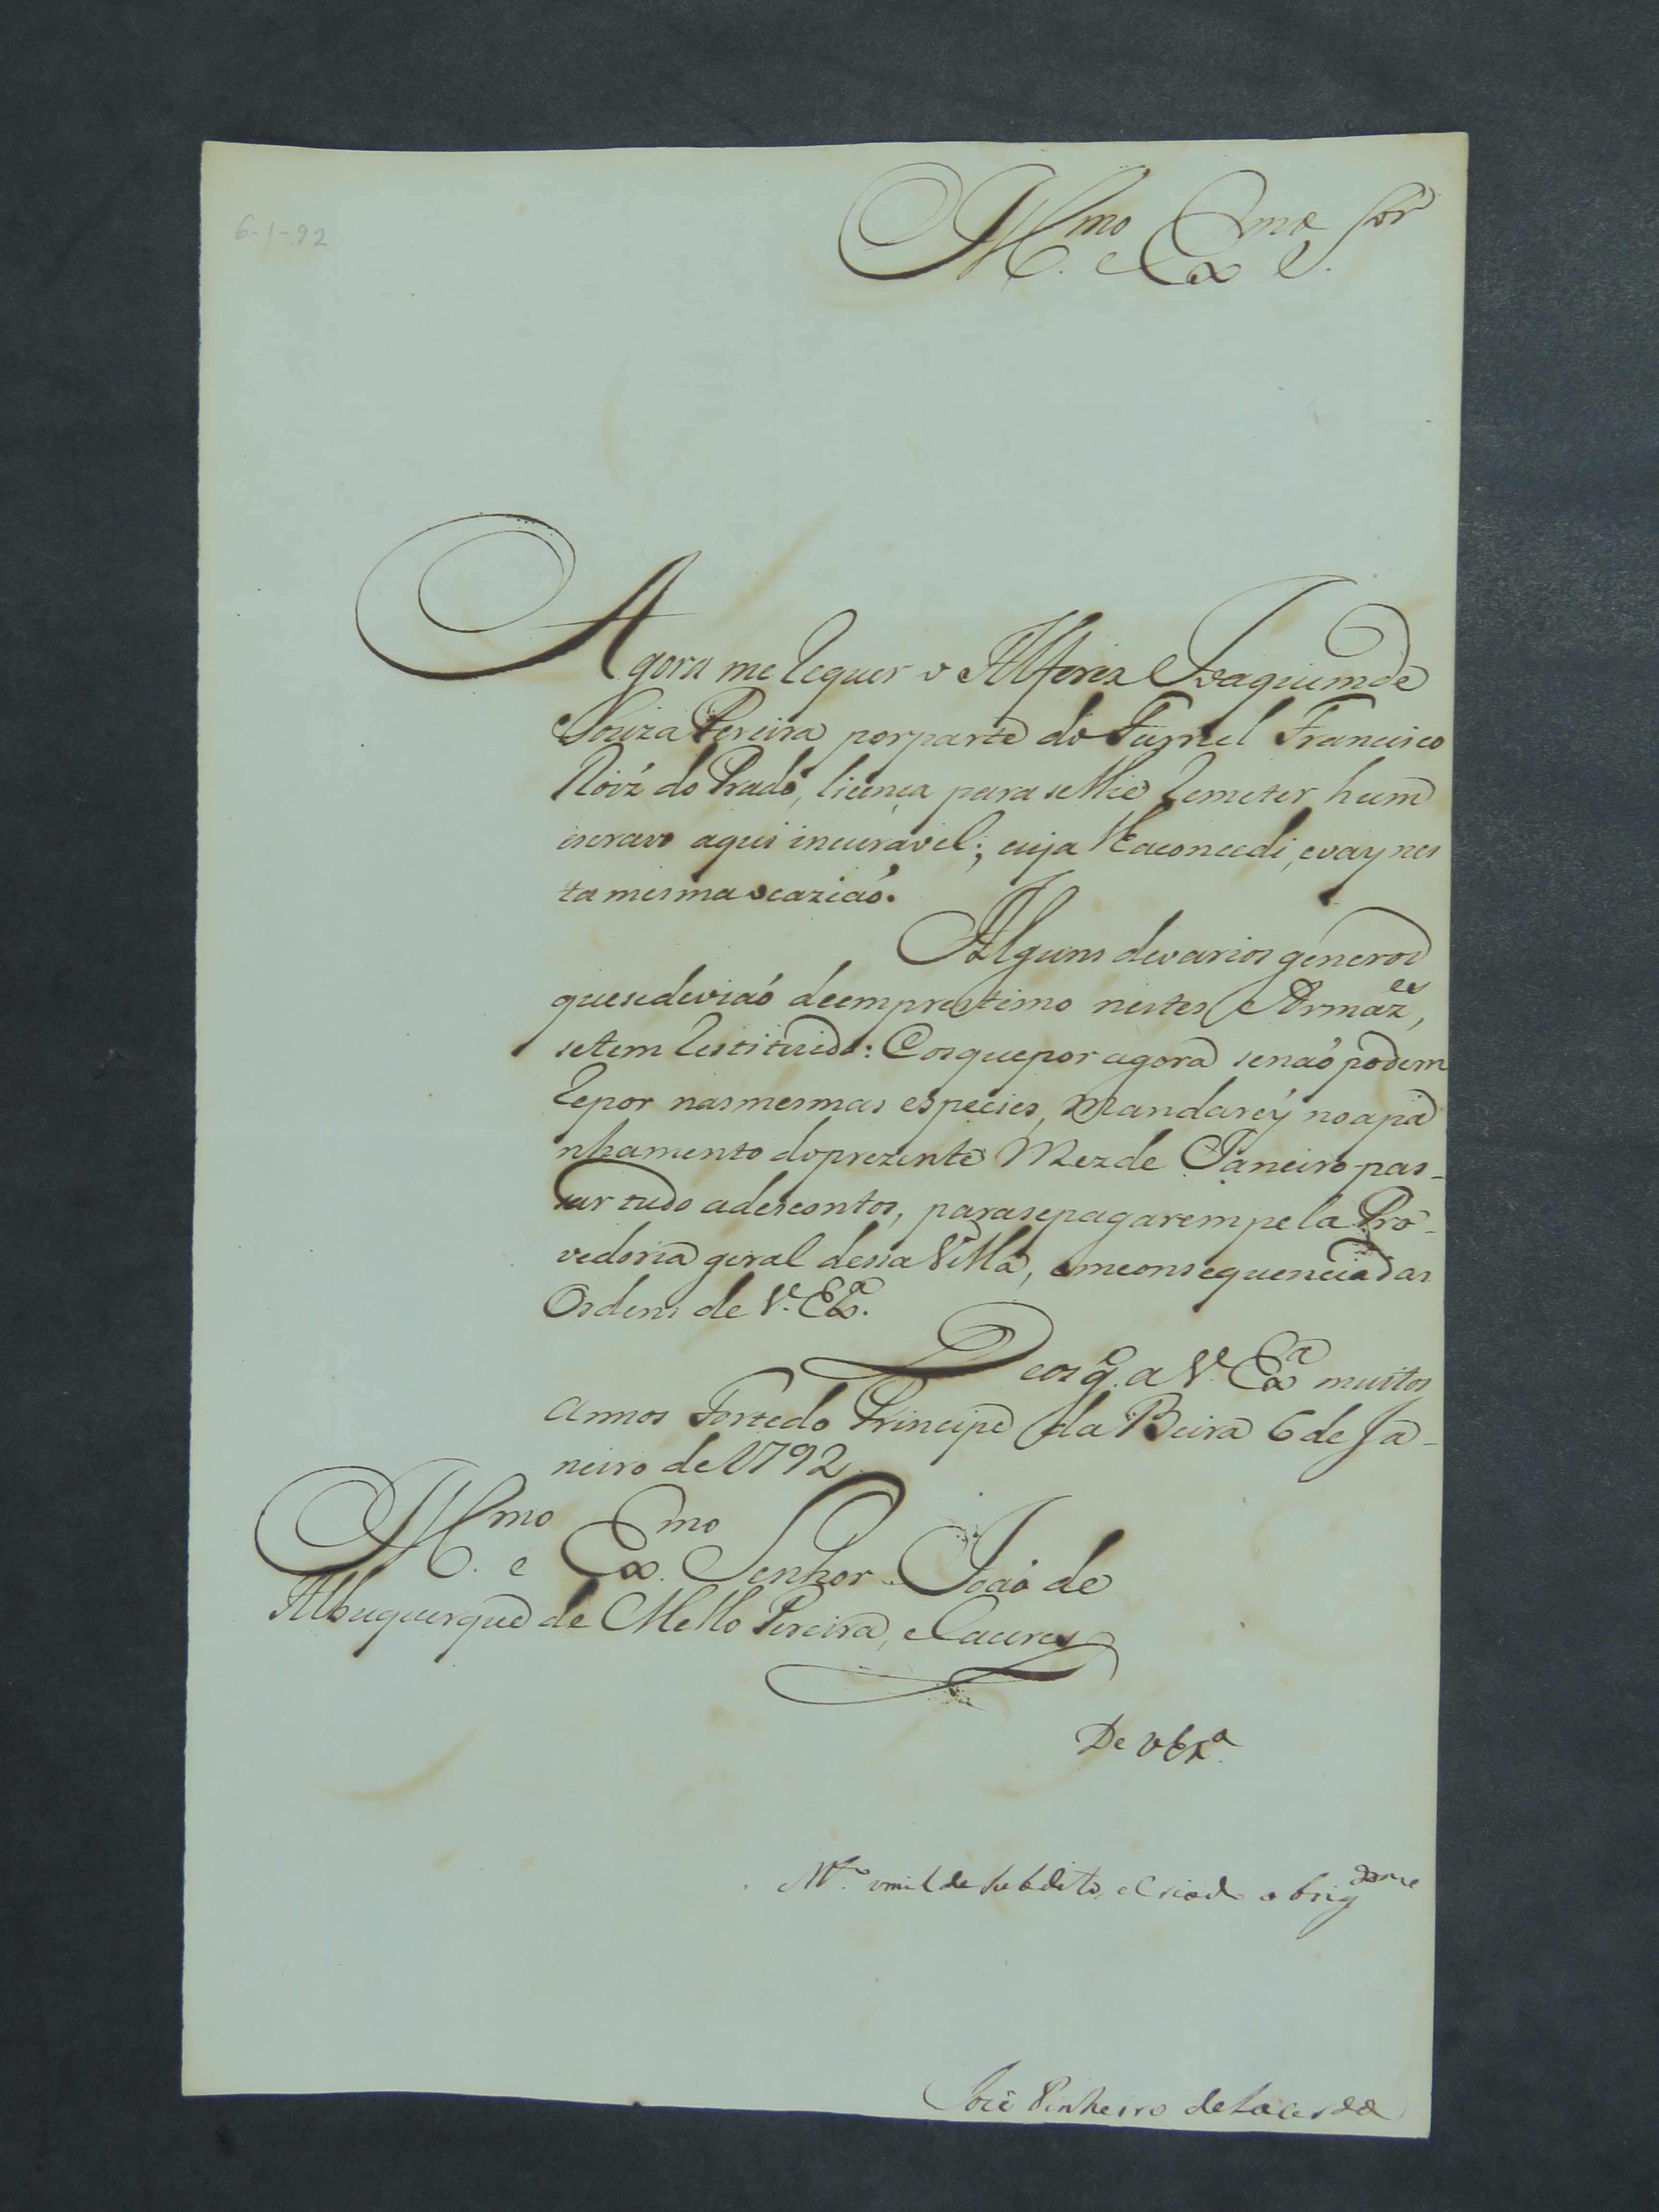 6-1-92
Ill.mo e Ex.mo S.or
Agora me requer o Alferes Joaquim de
Souza Pereira por parte do Furriel Francisco
Roiz do Prado, licença para se lhe remeter hum
escravo aqui incuravel; cuja lha concedi, e vay nes
ta mesma ocaziaó.
Alguns de varios generos
que se deviaó de emprestimo nestes Armaz.es,
se tem restituido: E os que por agora se naó podem
repor nas mesmas especies, Mandarey no apa
nhamento do prezente Mez de Janeiro pas-
sar tudo a descontos, para se pagarem pela Pro-
vedoria geral dessa Villa, em consequencia das
Ordens de V. Ex.ª
Deos g.e a V. Ex.ª muitos
annos Forte do Principe da Beira 6 de Ja-
neiro de 1792.
Ill.mo e Ex.mo Senhor Joaó de
Albuquerque de Mello Pereira, e Caceres
De V Ex.ª
M.to umilde subdito, e Criado obrig
José Pinheiro de Lacerda